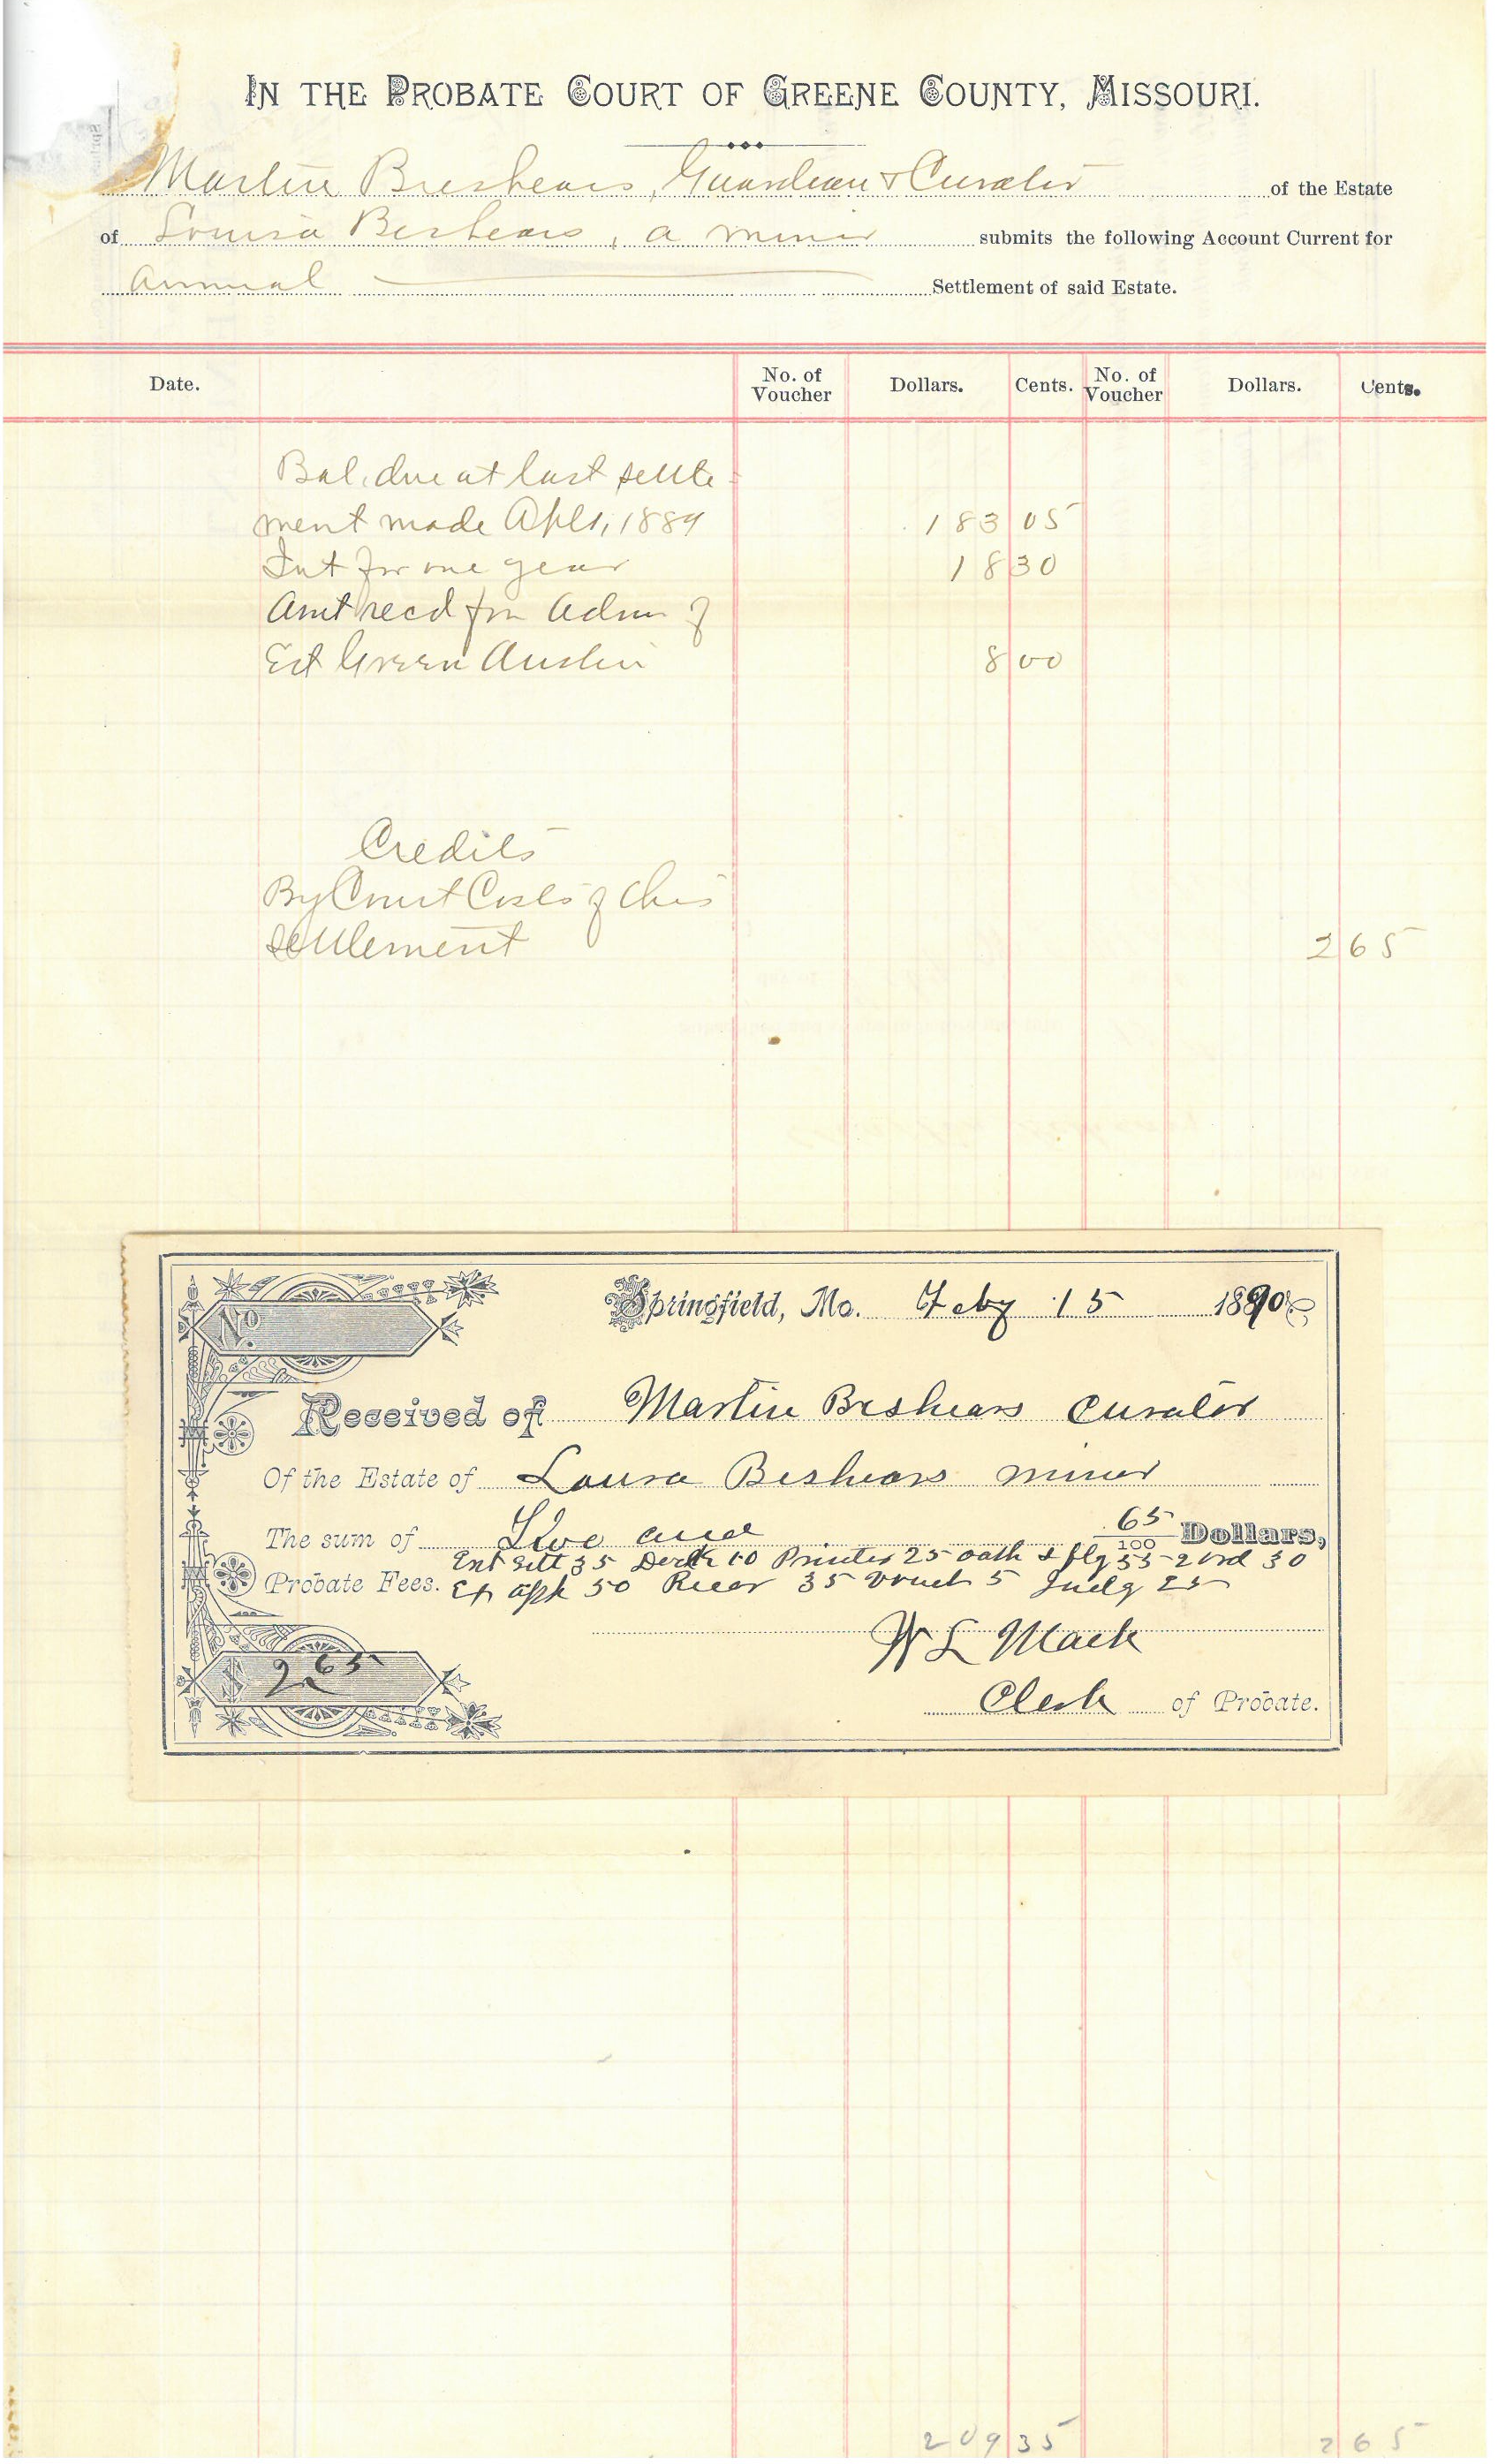 IN THE PROBATE COURT OF GREENE COUNTY, MISSOURI.
Martin Breshears, Guardian & Curator of the Estate
of Louisa Beshears, a minor submits the following Account Current for
Annual Settlement of said Estate.
Date. No. of Voucher Dollars. Cents. No. of Voucher Dollars. Cents.
Bal. due at last settle-
ment made Apl 1, 1889 183 05
Int for one year 18 30
Amt recd frm Admr of
Est Green Austin 8 00
Credits
By Court Costs of this
settlement 2 65
Springfield, Mo. Feby 15 1890
No
Received of Martin Beshears Curator
Of the Estate of Louisa Beshears minor
The sum of Two and 65/100 Dollars,
Ent Sett 35 Dock 10 Printer 25 oath & flg 55 2 ord 30
Probate Fees. Ex apk 50 Recor 35 Vouch 5 Judg 25
W L Mack
$ 2 65
Clerk of Probate.
209 35 2 65